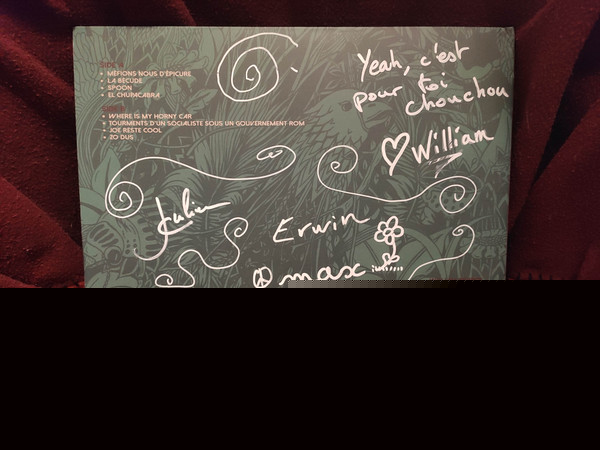 SIDE A
• MÉFIONS NOUS D'ÉPICURE
• LA BÉCUDE
• SPOON
• EL CHUPACABRA
SIDE B
• WHERE IS MY HORNY CAR
• TOURMENTS D'UN SOCIALISTE SOUS UN GOUVERNEMENT ROM
• JOE RESTE COOL
• 20 DUS
Yeah, c'est
pour toi
chouchou
William
Julien
Erwin
max